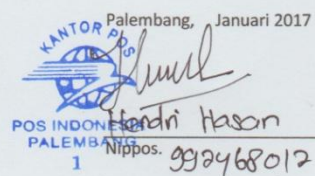 Palembang, Januari 2017
KANTOR POS
POS INDONESIA
PALEMBANG
1
Hendri Hasan
Nippos. 992468012